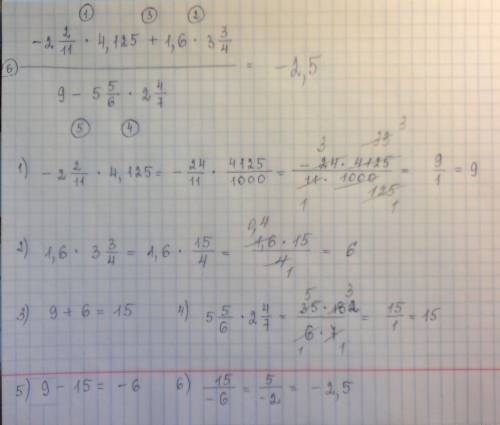 ① ③ ②
-2 2/11 · 4,125 + 1,6 · 3 3/4
⑥ ———————————— = -2,5
9 - 5 5/6 · 2 4/7
⑤ ④
1) -2 2/11 · 4,125 = -24/11 · 4125/1000 = (-24 · 4125)/(11 · 1000) = 9/1 = 9
2) 1,6 · 3 3/4 = 1,6 · 15/4 = (1,6 · 15)/4 = 6
3) 9 + 6 = 15 4) 5 5/6 · 2 4/7 = (35 · 182)/(6 · 7) = 15/1 = 15
5) 9 - 15 = -6 6) 15/-6 = 5/-2 = -2,5